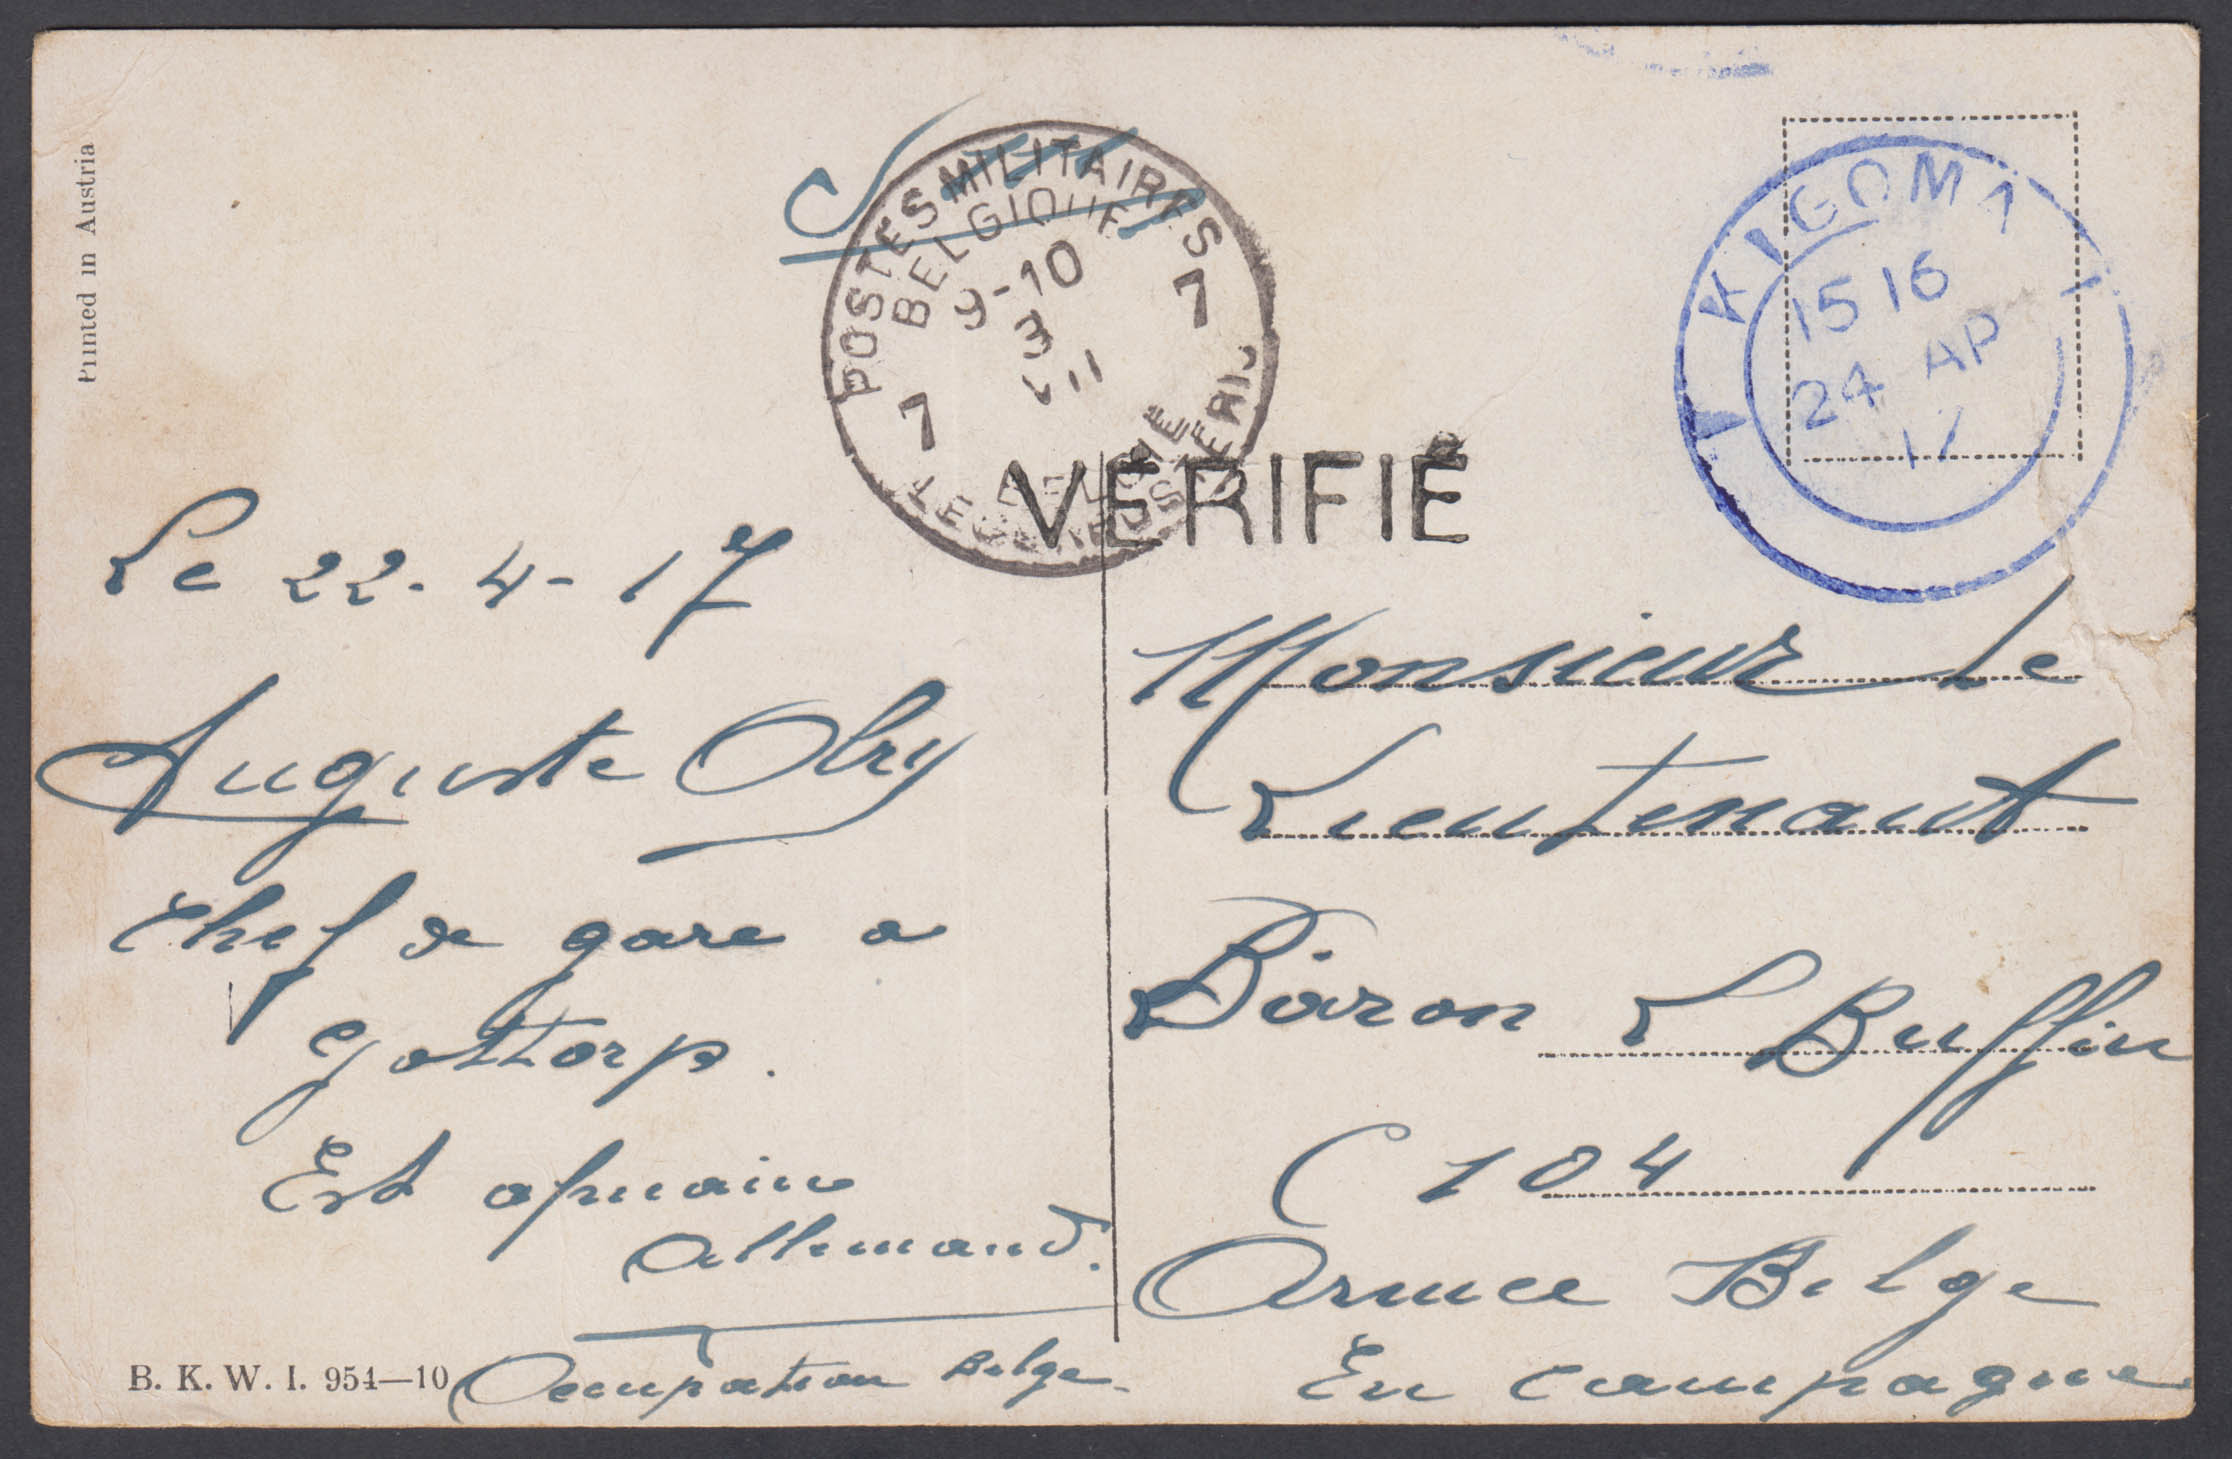 Printed in Austria
S.M.
POSTES MILITAIRES
BELGIQUE
9-10
3
VII
7 7
BELGIE
LEGERPOSTERIJ
VÉRIFIÉ
KIGOMA
15 16
24 AP
17
Le 22-4-17
Auguste Obry
Chef de gare a
Gottorp.
Est africain
Allemand.
Occupation Belge.
B. K. W. I. 954—10
Monsieur Le
Lieutenant
Baron L Buffin
C 104
Armee Belge
En campagne